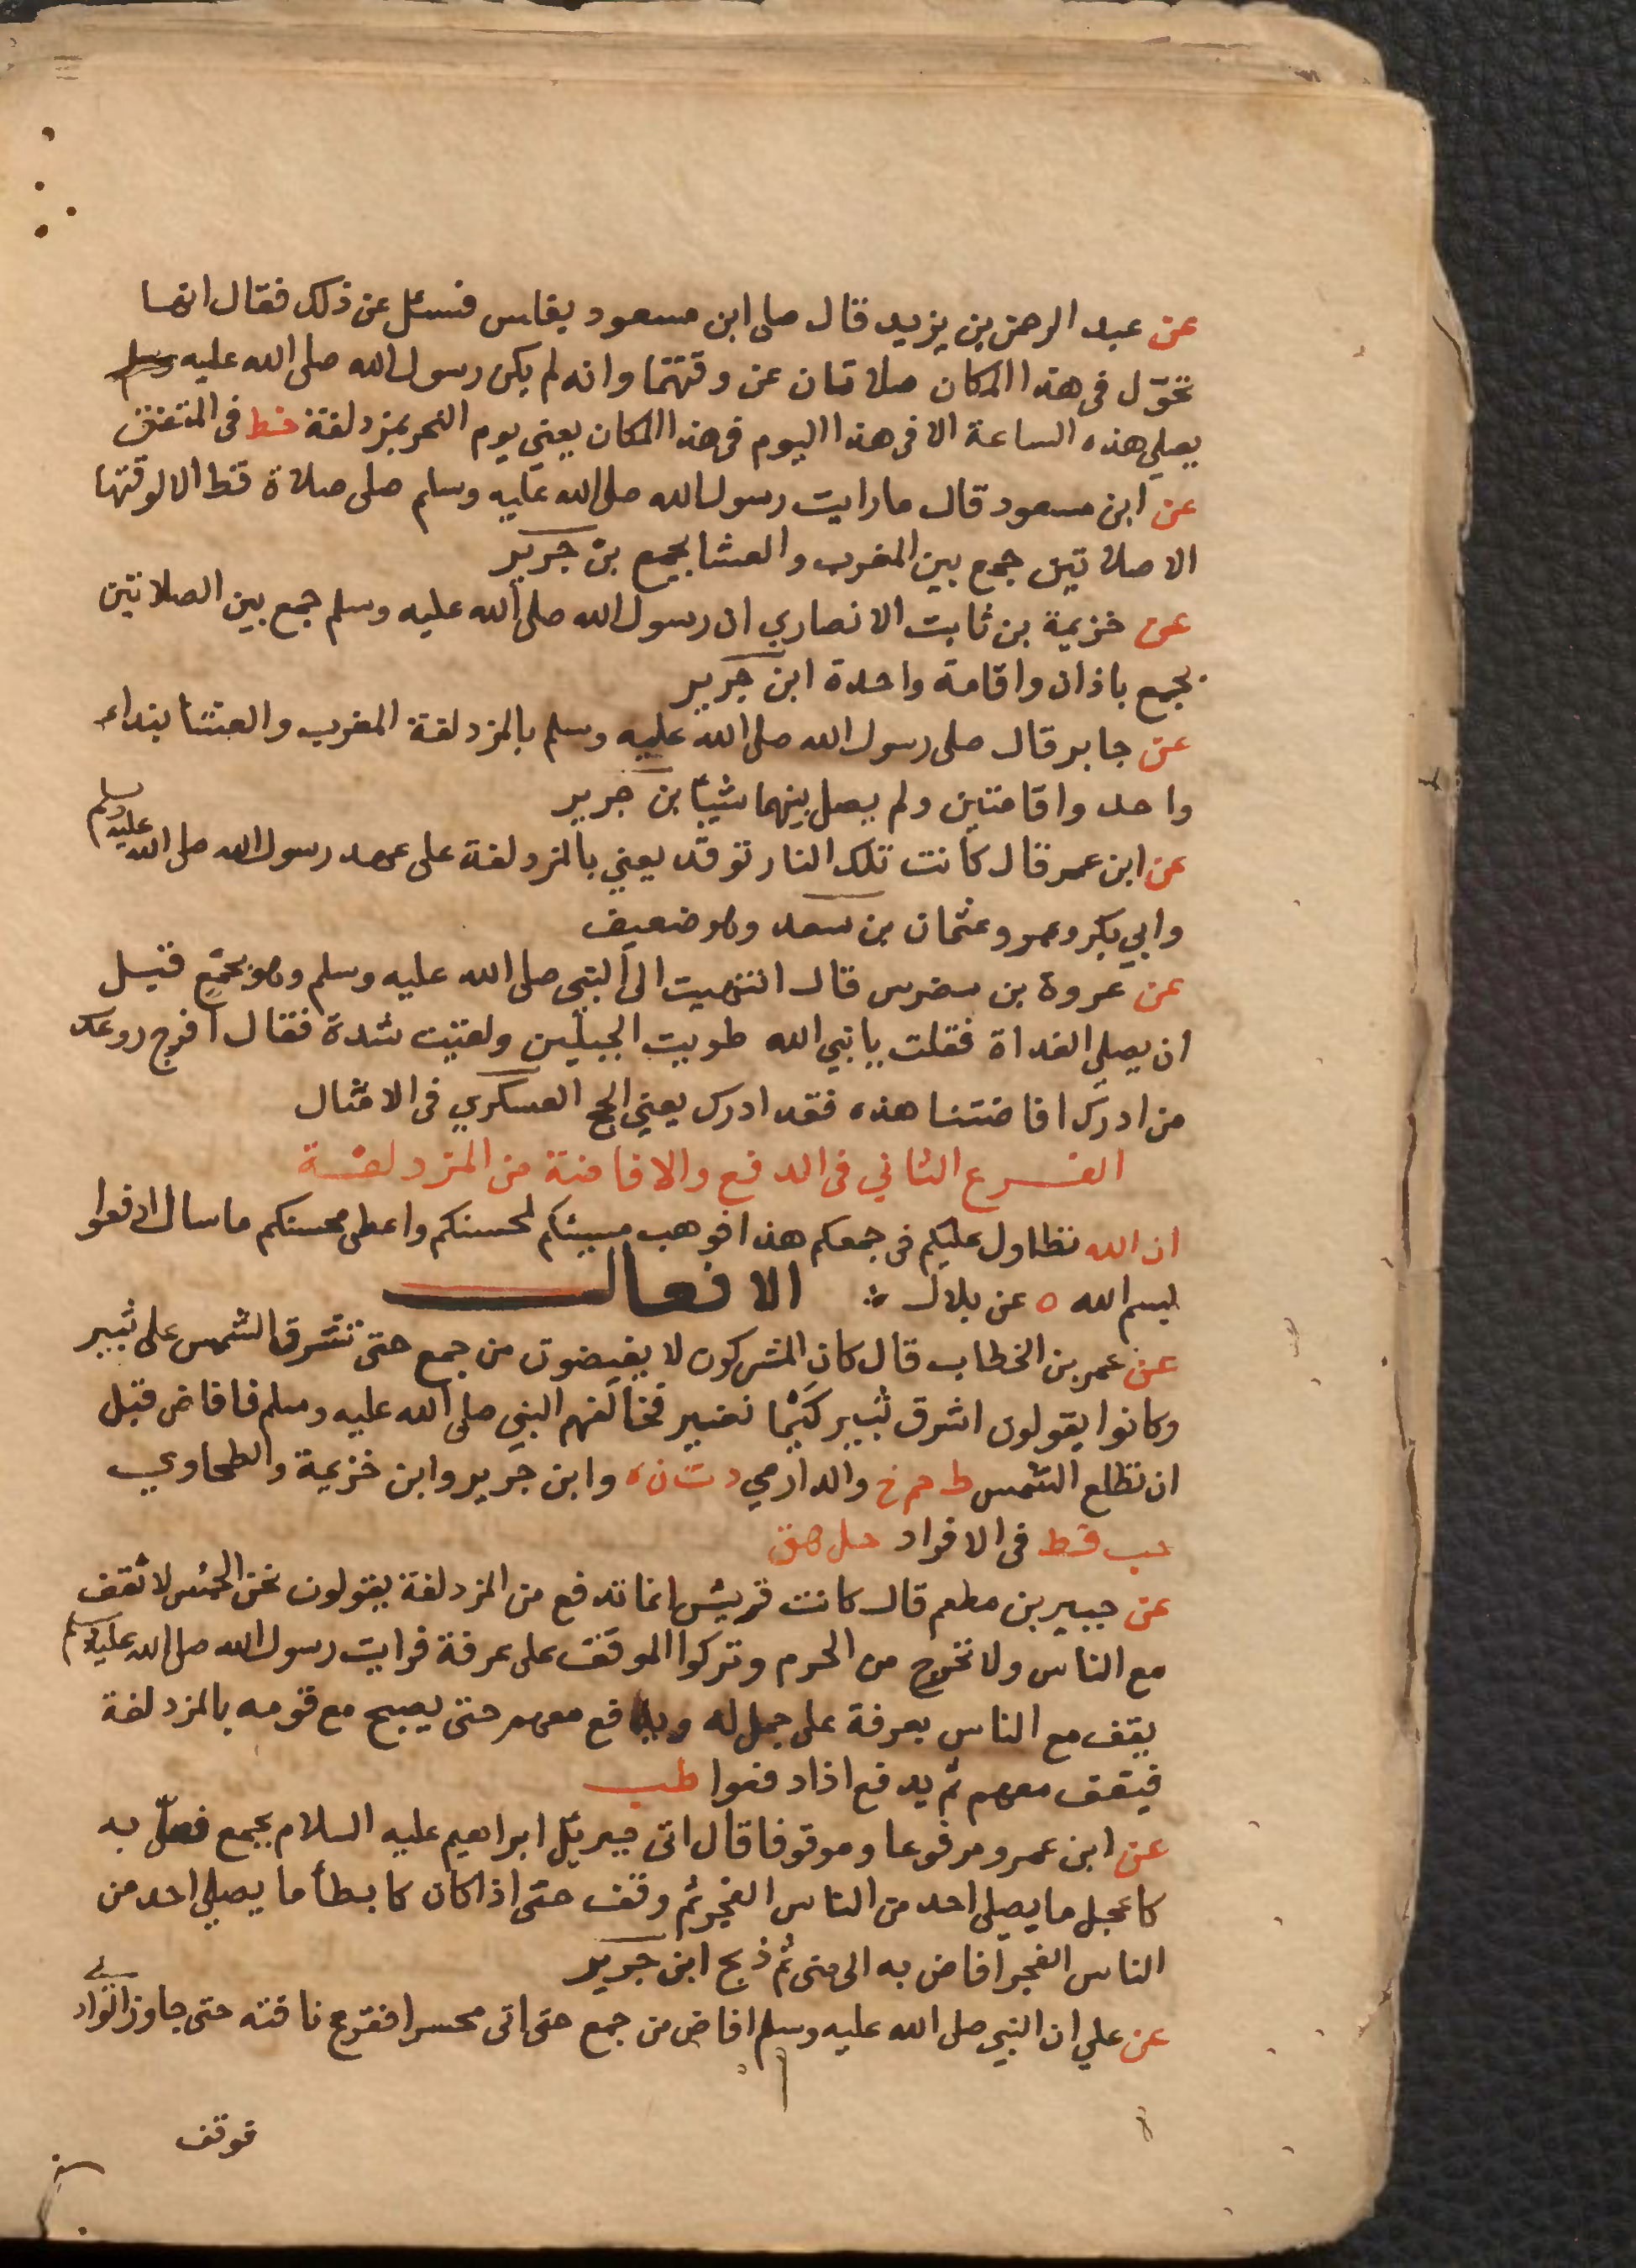 عن عبد الرحمن بن يزيد قال صلى ابن مسعود بغلس فسئل عن ذلك فقال انهما
تحوّل فى هذا المكان صلاتان عن وقتهما وانه لم يكن رسول الله صلى الله عليه وسلم
يصلي هذه الساعة الا فى هذا اليوم فى هذا المكان يعني يوم النحر بمزدلفة خط فى المتفق
عن ابن مسعود قال ما رايت رسول الله صلى الله عليه وسلم صلى صلاة قط الا لوقتها
الا صلاتين جمع بين المغرب والعشا بجمع بن جرير
عن خزيمة بن ثابت الانصاري ان رسول الله صلى الله عليه وسلم جمع بين الصلاتين
بجمع باذان واقامة واحدة ابن جرير
عن جابر قال صلى رسول الله صلى الله عليه وسلم بالمزدلفة المغرب والعشا بنداء
واحد واقامتين ولم يصل بينهما شيئا بن جرير
عن ابن عمر قال كانت تلك النار توقد يعني بالمزدلفة على عهد رسول الله صلى الله عليه وسلم
وابي بكر وعمر وعثمان بن سعد وهو ضعيف
عن عروة بن مضرس قال انتهيت الى النبي صلى الله عليه وسلم وهو بجمع قبل
ان يصلي الغداة فقلت يا نبي الله طويت الجبلين ولقيت شدة فقال افرج روعك
من ادرك افاضتنا هذه فقد ادرك يعني الحج العسكري فى الامثال
الفرع الثاني فى الدفع والافاضة من المزدلفة
ان الله تطاول عليكم فى جمعكم هذا فوهب مسيئكم لمحسنكم واعطى محسنكم ما سال ادفعوا
بسم الله ه عن بلال ∴ الافعال
عن عمر بن الخطاب قال كان المشركون لا يفيضون من جمع حتى تشرق الشمس على ثبير
وكانوا يقولون اشرق ثبير كَيْما نغير فخالفهم النبي صلى الله عليه وسلم فافاض قبل
ان تطلع الشمس ط حم خ والدارمي د ت ن ه وابن جرير وابن خزيمة والطحاوي
حب قط فى الافراد حل هق
عن جبير بن مطعم قال كانت قريش انما تدفع من المزدلفة يقولون نحن الحمس لا نقف
مع الناس ولا نخرج من الحرم وتركوا الموقف على عرفة فرايت رسول الله صلى الله عليه وسلم
يقف مع الناس بعرفة على جمل له ويدفع معهم حتى يصبح مع قومه بالمزدلفة
فيقف معهم ثم يدفع اذا دفعوا طب
عن ابن عمرو مرفوعا وموقوفا قال اتى جبريل ابراهيم عليه السلام بجمع فصلّ به
كاعجل ما يصلي احد من الناس الفجر ثم وقف حتى اذا كان كابطأ ما يصلي احد من
الناس الفجر افاض به الى منى ثم ذبح ابن جرير
عن علي ان النبي صلى الله عليه وسلم افاض من جمع حتى اتى محسرا فقرع ناقته حتى جاوز الوادي
فوقف